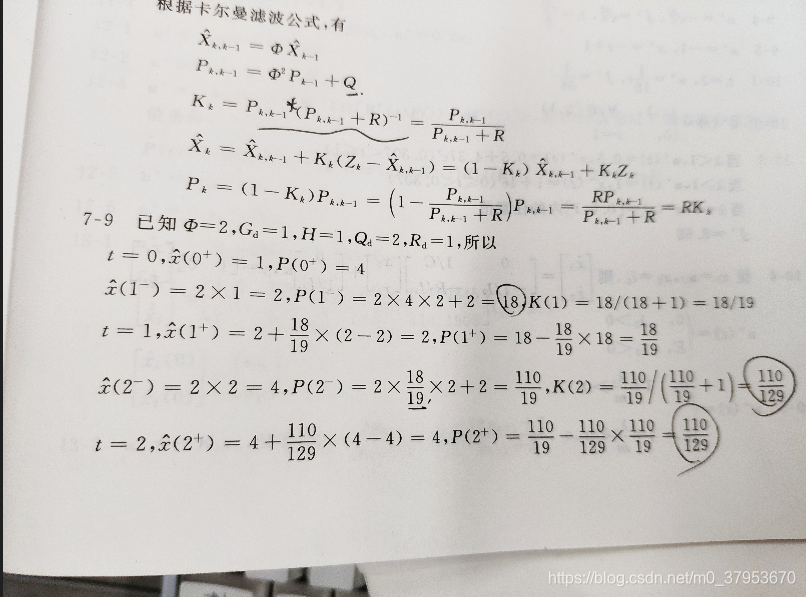 根据卡尔曼滤波公式,有
X̂ₖ,ₖ₋₁ = ΦX̂ₖ₋₁
Pₖ,ₖ₋₁ = Φ²Pₖ₋₁ + Q
Kₖ = Pₖ,ₖ₋₁*(Pₖ,ₖ₋₁ + R)⁻¹ = Pₖ,ₖ₋₁/(Pₖ,ₖ₋₁ + R)
X̂ₖ = X̂ₖ,ₖ₋₁ + Kₖ(Zₖ − X̂ₖ,ₖ₋₁) = (1 − Kₖ) X̂ₖ,ₖ₋₁ + KₖZₖ
Pₖ = (1 − Kₖ)Pₖ,ₖ₋₁ = (1 − Pₖ,ₖ₋₁/(Pₖ,ₖ₋₁ + R))Pₖ,ₖ₋₁ = RPₖ,ₖ₋₁/(Pₖ,ₖ₋₁ + R) = RKₖ
7-9 已知 Φ=2,G_d=1,H=1,Q_d=2,R_d=1,所以
t = 0,x̂(0⁺) = 1,P(0⁺) = 4
x̂(1⁻) = 2 × 1 = 2,P(1⁻) = 2 × 4 × 2 + 2 = 18,K(1) = 18/(18 + 1) = 18/19
t = 1,x̂(1⁺) = 2 + 18/19 × (2 − 2) = 2,P(1⁺) = 18 − 18/19 × 18 = 18/19
x̂(2⁻) = 2 × 2 = 4,P(2⁻) = 2 × 18/19 × 2 + 2 = 110/19,K(2) = 110/19/(110/19 + 1) = 110/129
t = 2,x̂(2⁺) = 4 + 110/129 × (4 − 4) = 4,P(2⁺) = 110/19 − 110/129 × 110/19 = 110/129
https://blog.csdn.net/m0_37953670